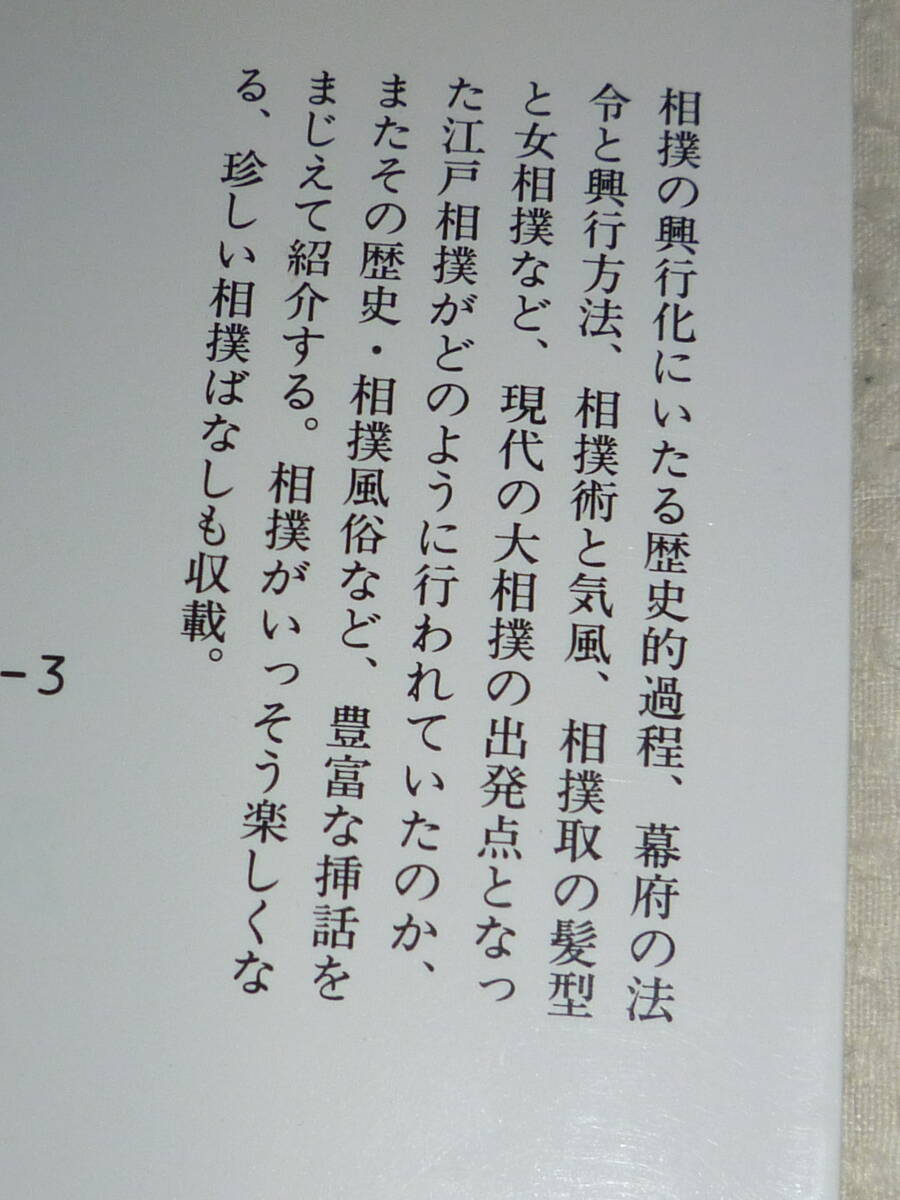 相撲の興行化にいたる歴史的過程、幕府の法
令と興行方法、相撲術と気風、相撲取の髪型
と女相撲など、現代の大相撲の出発点となっ
た江戸相撲がどのように行われていたのか、
またその歴史・相撲風俗など、豊富な挿話を
まじえて紹介する。相撲がいっそう楽しくな
る、珍しい相撲ばなしも収載。
-3